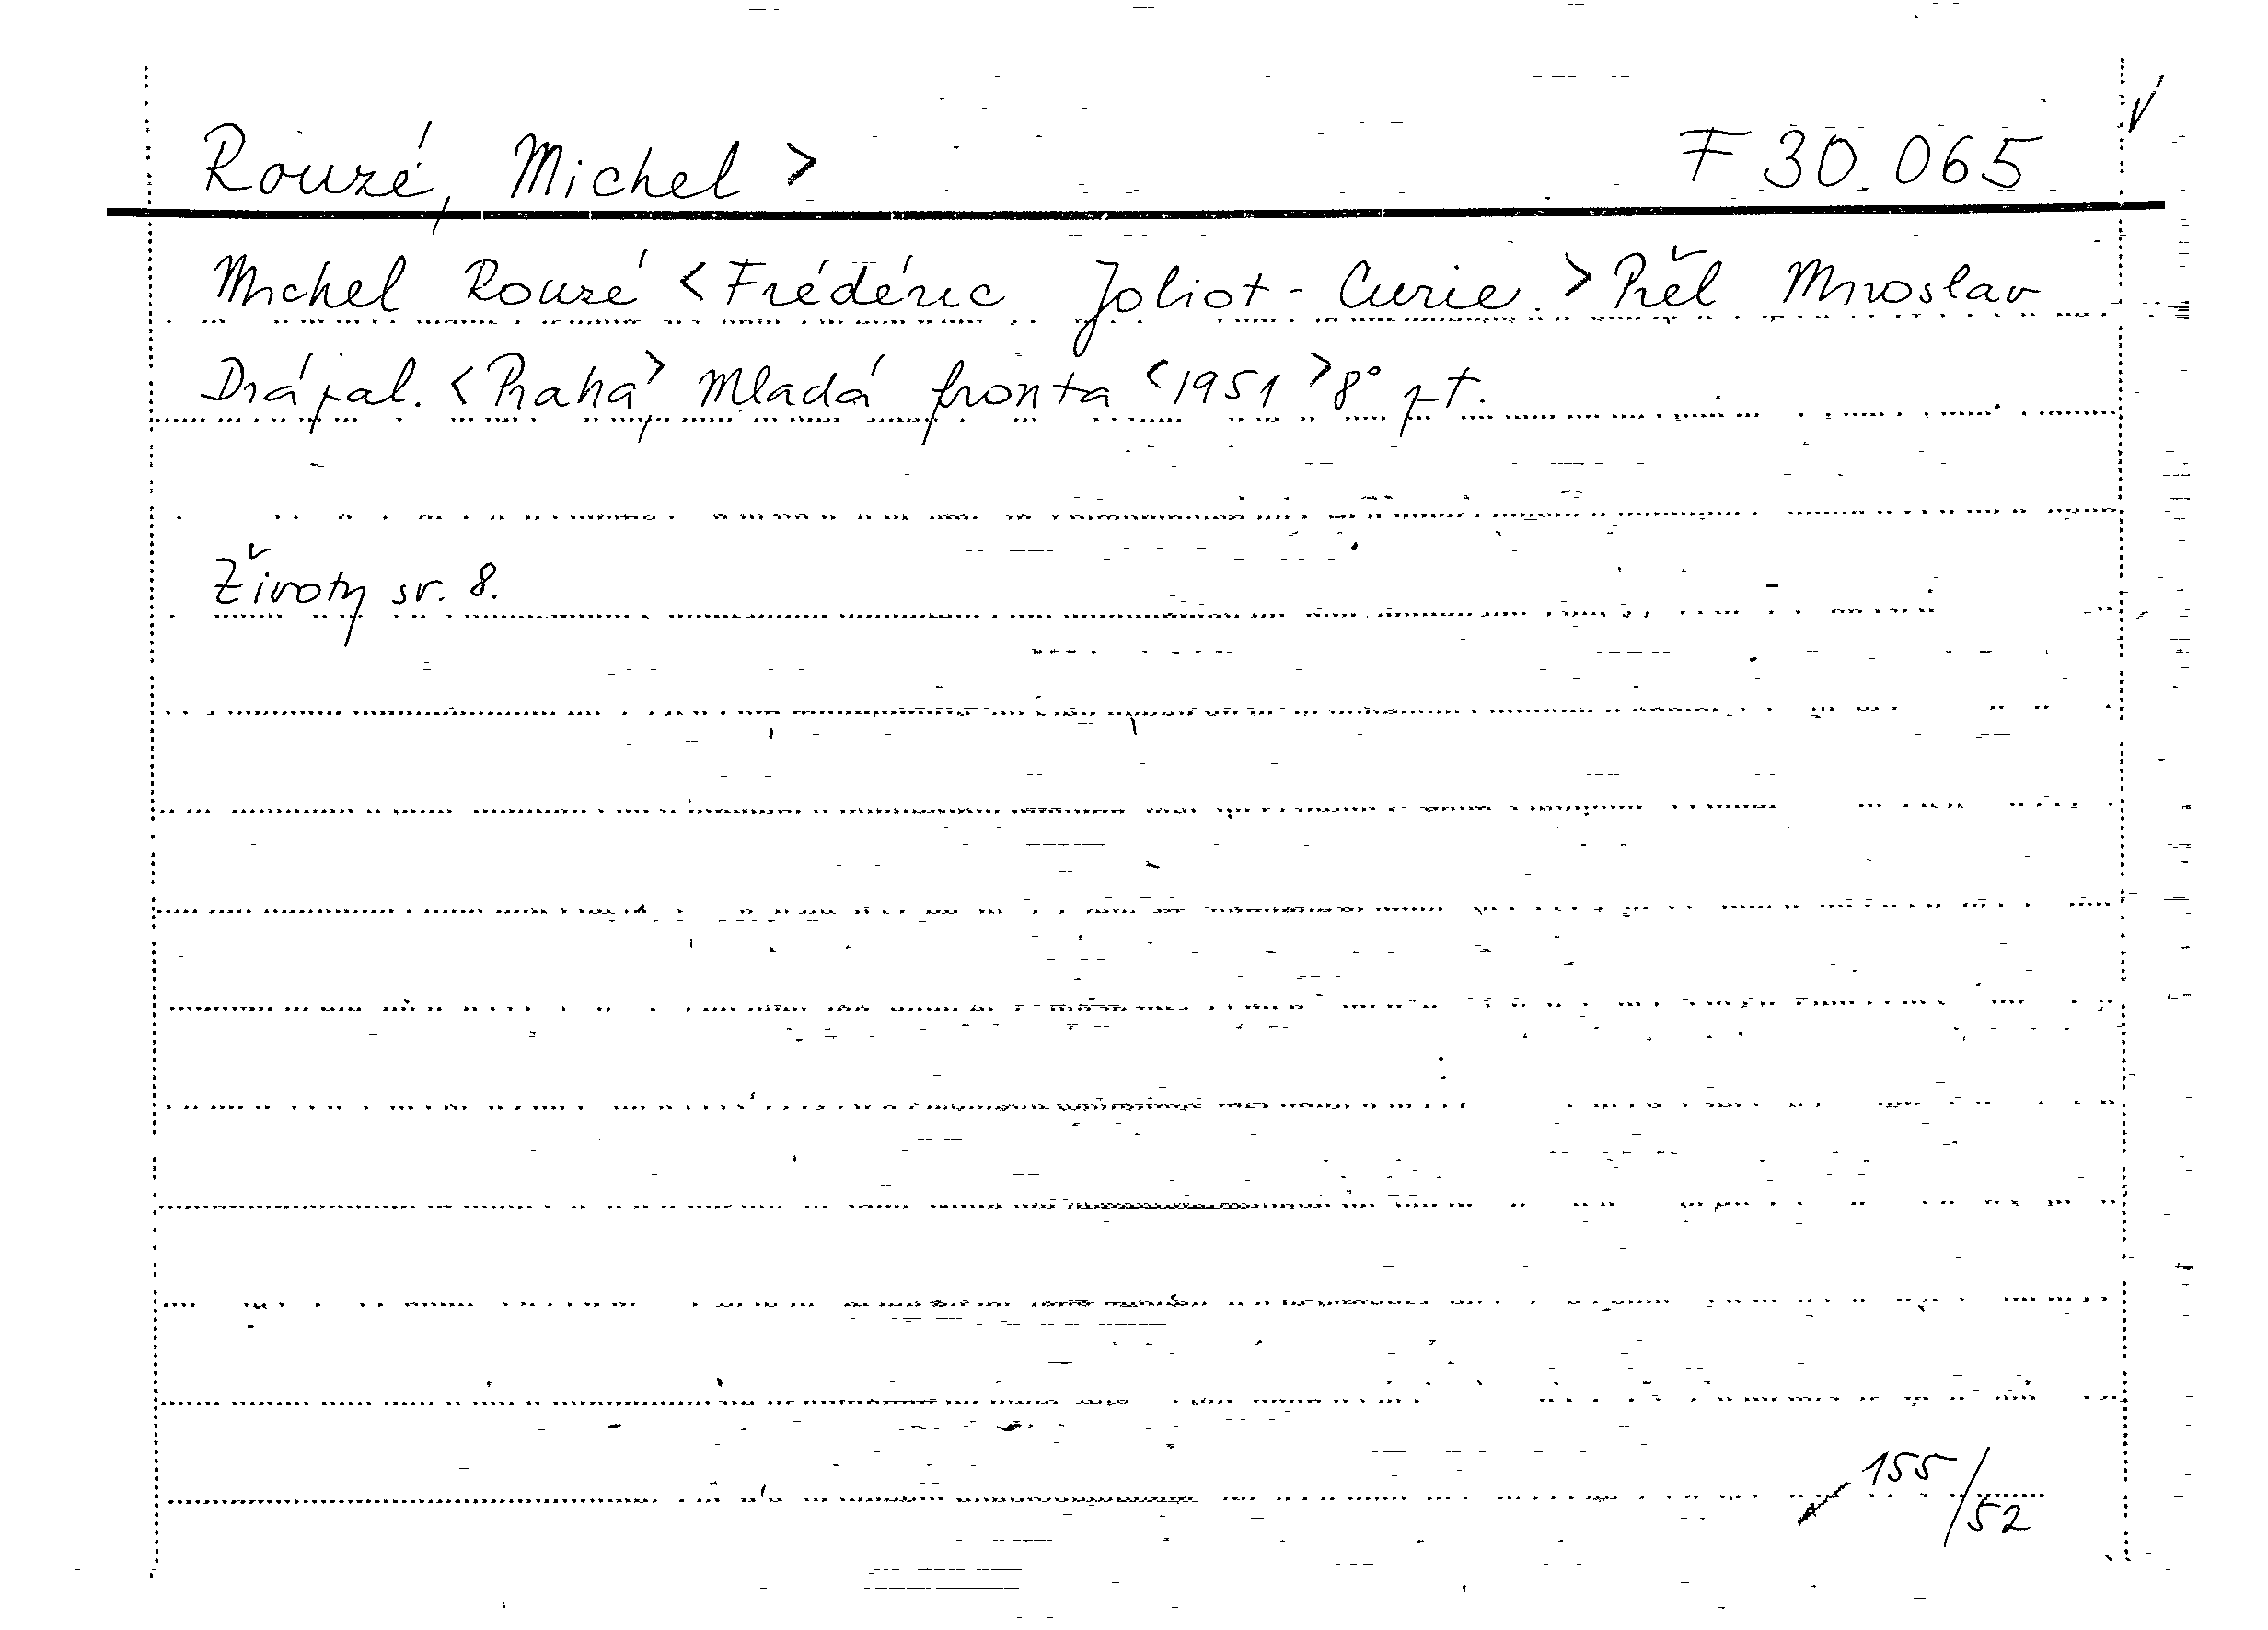 Rouzé, Michel > F 30.065
Michel Rouzé <Frédéric Joliot-Curie.> Přel Miroslav
Drápal. <Praha,> Mladá fronta <1951> 8° pt.
Životy sv. 8.
155/52